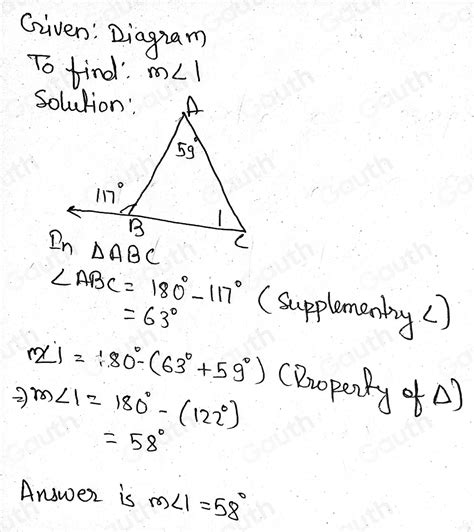 Given: Diagram
To find: m∠1
Solution:
A
59°
117°
1
B
C
In ΔABC
∠ABC = 180° - 117° (Supplementry ∠)
= 63°
m∠1 = 180° - (63° + 59°) (Property of Δ)
⇒ m∠1 = 180° - (122°)
= 58°
Answer is m∠1 = 58°
Gauth